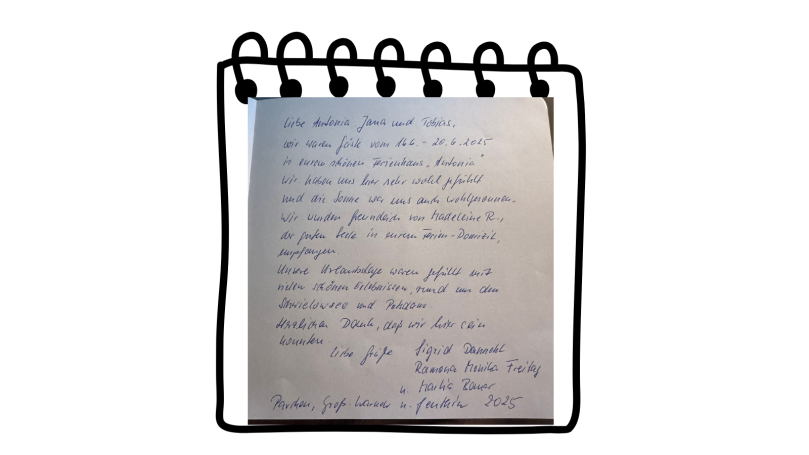 Liebe Antonia Jana und Tobias,
wir waren Gäste vom 16.6. - 20.6.2025
in eurem schönen Ferienhaus „Antonia"
Wir haben uns hier sehr wohl gefühlt
und die Sonne war uns auch wohlgesonnen.
Wir wurden freundlich von Madeleine R.,
der guten Seele in eurem Ferien-Domizil,
empfangen.
Unsere Urlaubstage waren gefüllt mit
vielen schönen Erlebnissen, rund um den
Schwielowsee und Potsdam.
Herzlichen Dank, daß wir hier sein
konnten
Liebe Grüße Sigrid
Ramona Monika Freitag
u. Bauer
Parchen, Groß u. Genthin 2025